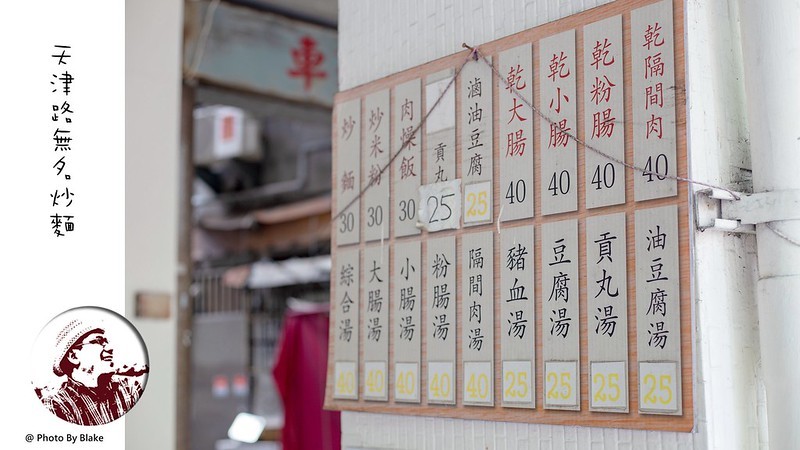 天津路無名炒麵
@ Photo By Blake
車
乾隔間肉 40
乾粉腸 40
乾小腸 40
乾大腸 40
滷油豆腐 25
貢丸 25
肉燥飯 30
炒米粉 30
炒麵 30
油豆腐湯 25
貢丸湯 25
豆腐湯 25
豬血湯 25
隔間肉湯 40
粉腸湯 40
小腸湯 40
大腸湯 40
綜合湯 40